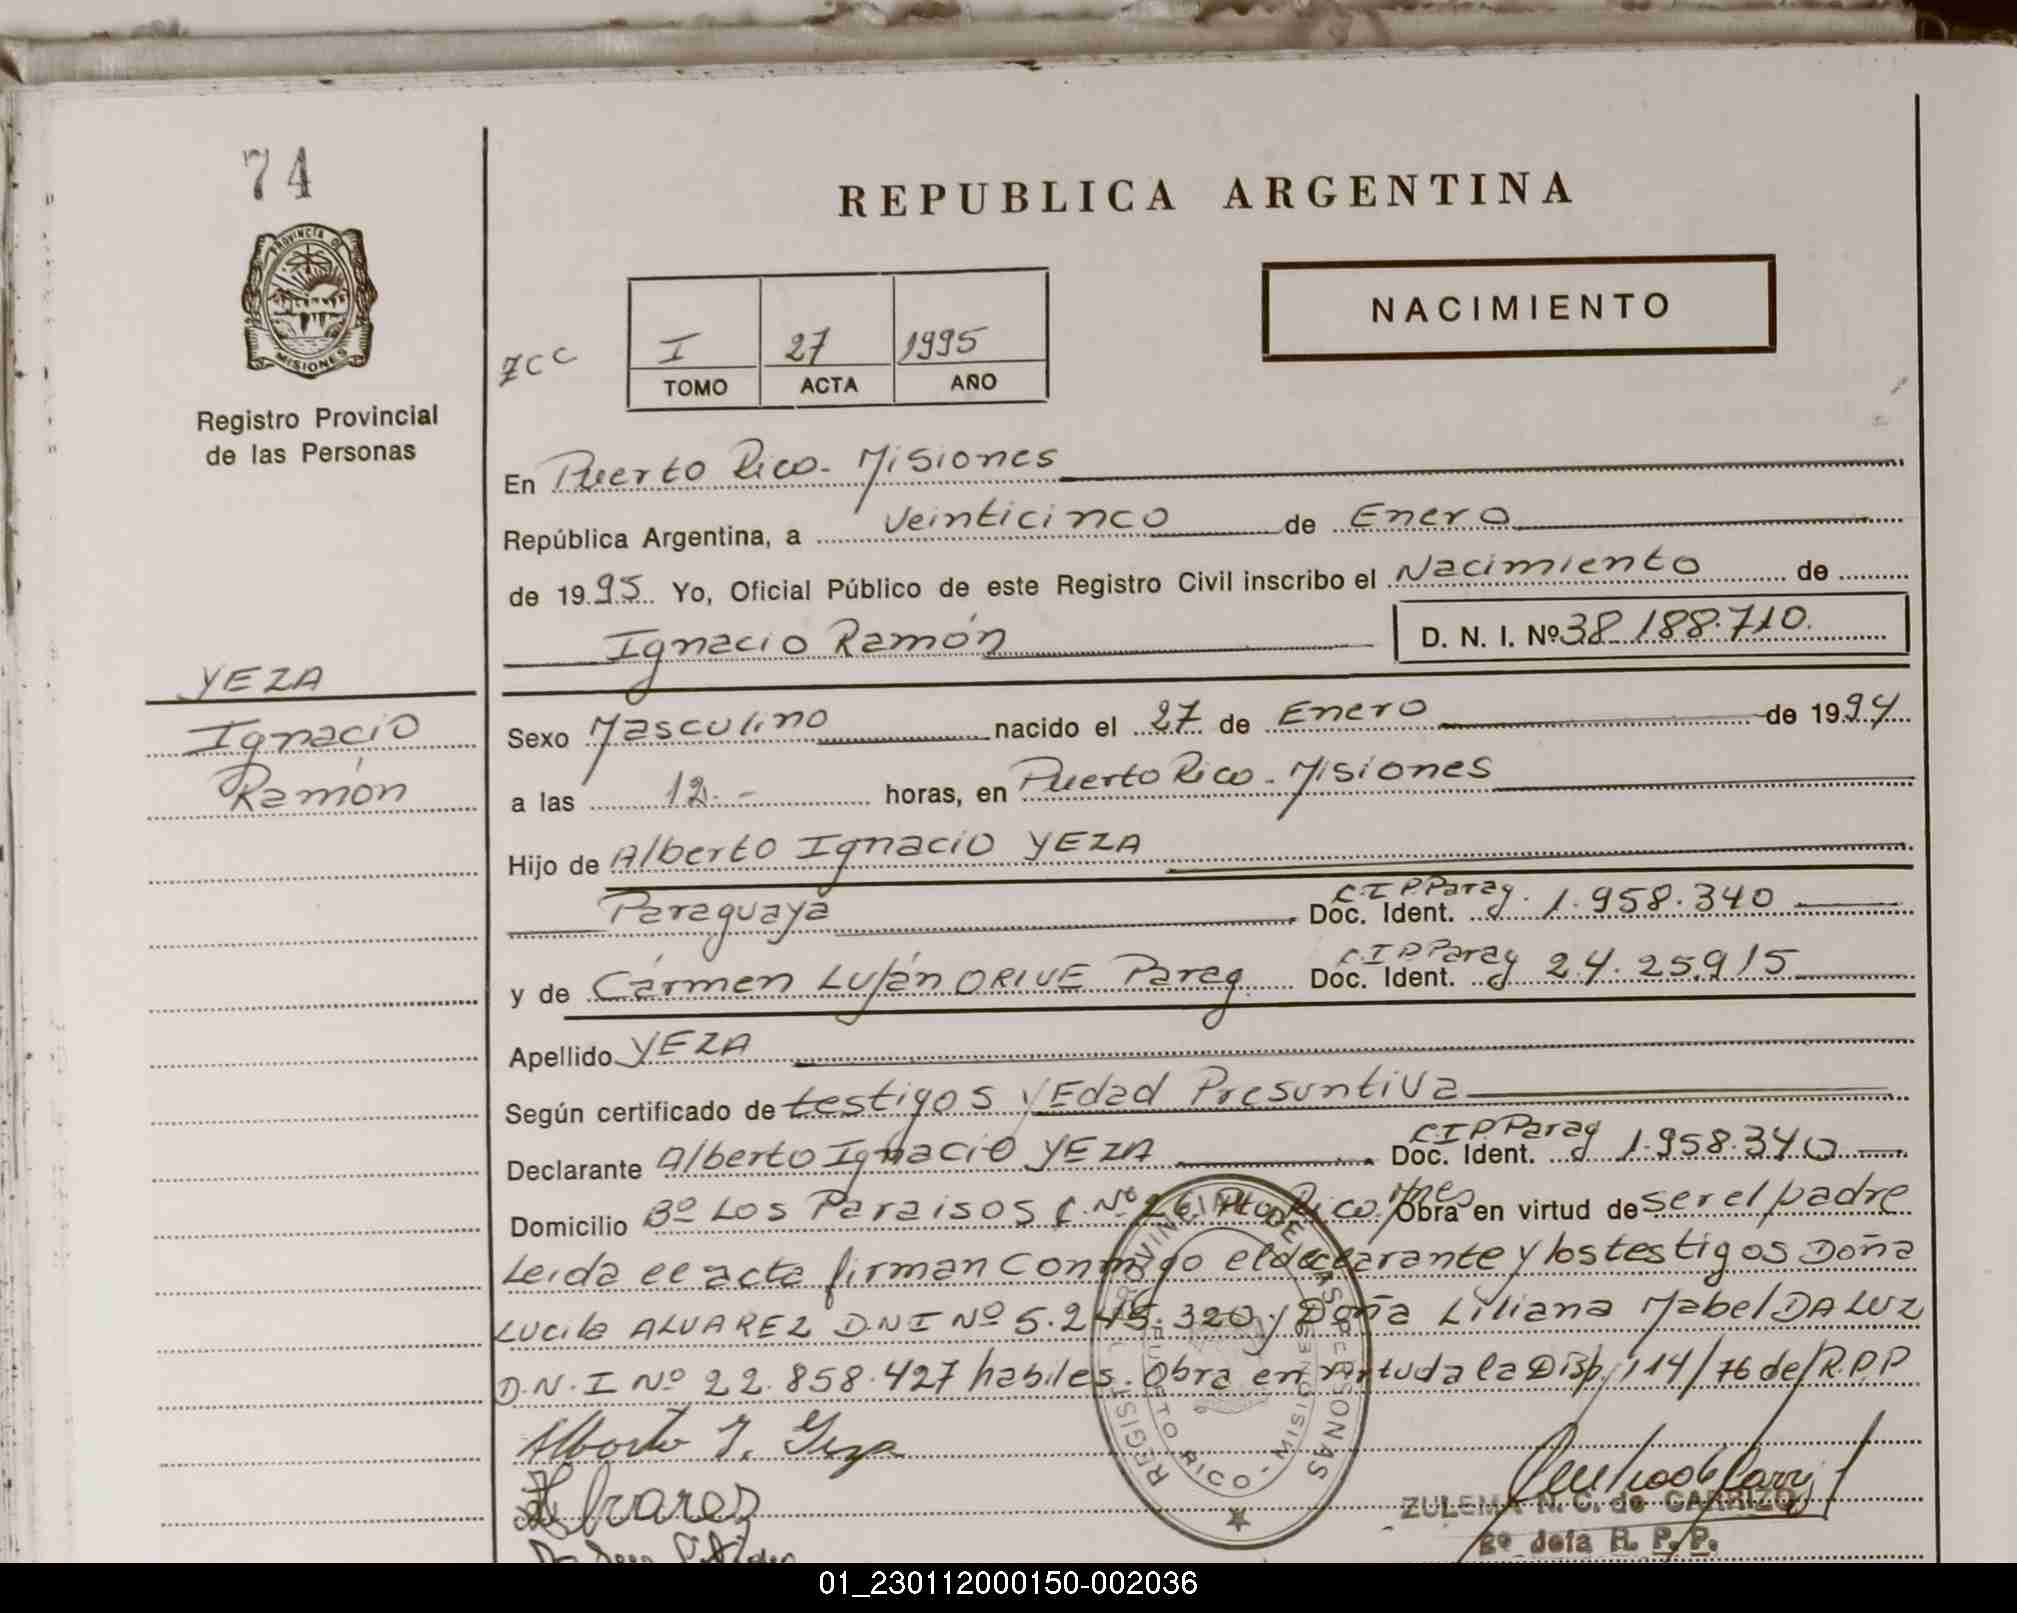 74
REPUBLICA ARGENTINA
PROVINCIA DE
MISIONES
Registro Provincial
de las Personas
NACIMIENTO
I 27 1995
TOMO ACTA AÑO
En Puerto Rico - Misiones
República Argentina, a veinticinco de Enero
de 1995 Yo, Oficial Público de este Registro Civil inscribo el Nacimiento de
Ignacio Ramón D. N. I. Nº 38.188.710.
YEZA
Ignacio
Ramón
Sexo Masculino nacido el 27 de Enero de 1994
a las 12.- horas, en Puerto Rico - Misiones
Hijo de Alberto Ignacio YEZA
Paraguaya Doc. Ident. C.I.P.Parag. 1.958.340
y de Carmen Luján ORIUE Parag. Doc. Ident. C.I.P Parag 24.25915
Apellido YEZA
Según certificado de testigos y Edad Presuntiva
Declarante Alberto Ignacio YEZA Doc. Ident. C.I.P.Parag 1.958.340
Domicilio Bº Los Paraisos C.Nº 26 Pto Rico. Mnes Obra en virtud de ser el padre
Leida el acta firman Conmigo el declarante y los testigos Doña
Lucila ALVAREZ D.N.I Nº 5.245.320 y Doña Liliana Mabel DA LUZ
D.N.I Nº 22.858.427 habiles. Obra en virtud a la Disp. 114/76 del R.P.P
Alberto I. Yeza
Alvarez
REGISTRO PROVINCIAL DE LAS PERSONAS
PUERTO RICO - MISIONES
ZULEMA N. C. de CARRIZO
R. P. P.
01_230112000150-002036